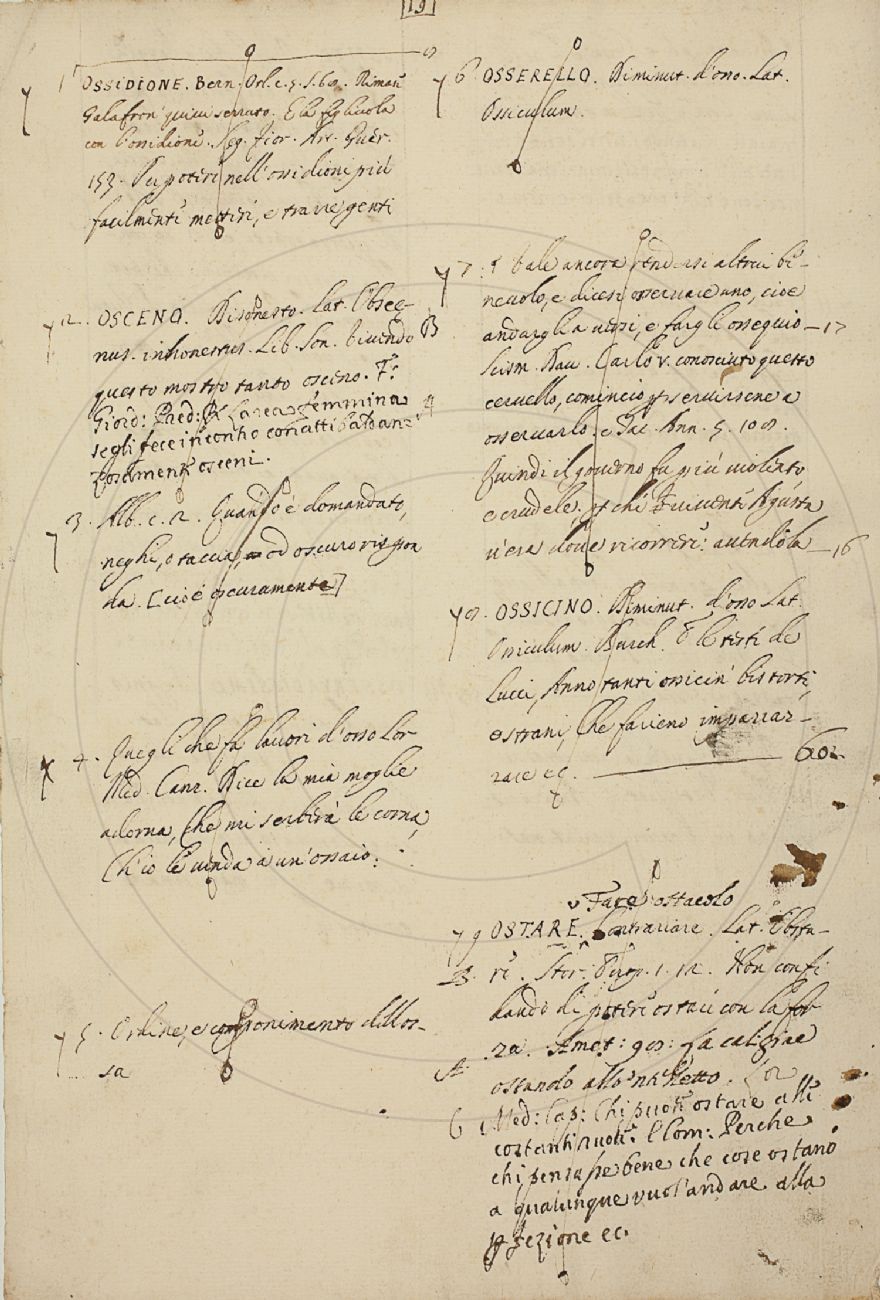 19
1 OSSIDIONE. Bern. Orl.
Galafron quivi serrato. E la figliuola
con l'ossidione. Seg. Fior. Art. Guer.
153. Per poter nell'ossidioni più
facilmente mettere, e trarre genti
2. OSCENO. Disonesto. Lat. Obsce-
nus. inhonestus. Lib. Son. vivendo B
questo mostro tanto osceno. F:
Giord: Pred: R La rea femmina A
segli fece incontro con atti baldanz
zosamente osceni.
3. Alb. c. 2. Quando è domandato,
neghi, o taccia, od oscuro rispon
da. [cioè oscuramente]
4. Quegli che fa lavori d'osso Lor
Med. Canz. Dice la mia moglie
adorna, Che mi serbirà le corna,
Ch'io le venda a un'ossaio.
5. Ordine, e componimento dell'os-
sa
6 OSSERELLO. Diminut. d'osso. Lat.
Ossiculum.
7. Vale ancora altrui be-
nevolo, e dicesi osservare uno, cioè
andargli a versi, e fargli ossequio – 17
Scism. Dav. Carlo V. conosciuto questo
cervello, cominciò servirsene a
osservarlo. e Tac. Ann. 5. 108.
Quindi il governo fu più violento
e crudele, chè vivente Agusta
v'era dove ricorrere: avendola – 16
8. OSSICINO. Diminut. d'osso Lat.
Ossiculum. Burch. E le teste de
Lucci, Anno tanti ossicin bistorti,
e strani, Che farieno imparar-
rare ec. 602
v Fare ostacolo
9 OSTARE. Contrariare. Lat. Obsta-
B. re. Stor: Pirog. 1. 12. Non confi
dando di potere ostare con la for
A za. Amet: 90: la caligine
ostando allo 'ntelletto. Lor
6 Med: Cap: Chi puote ostare alle
costanti ruote? E Com: Perche
chi pensa bene che cose ostano
a qualunque vuol'andare alla
fezione ec.